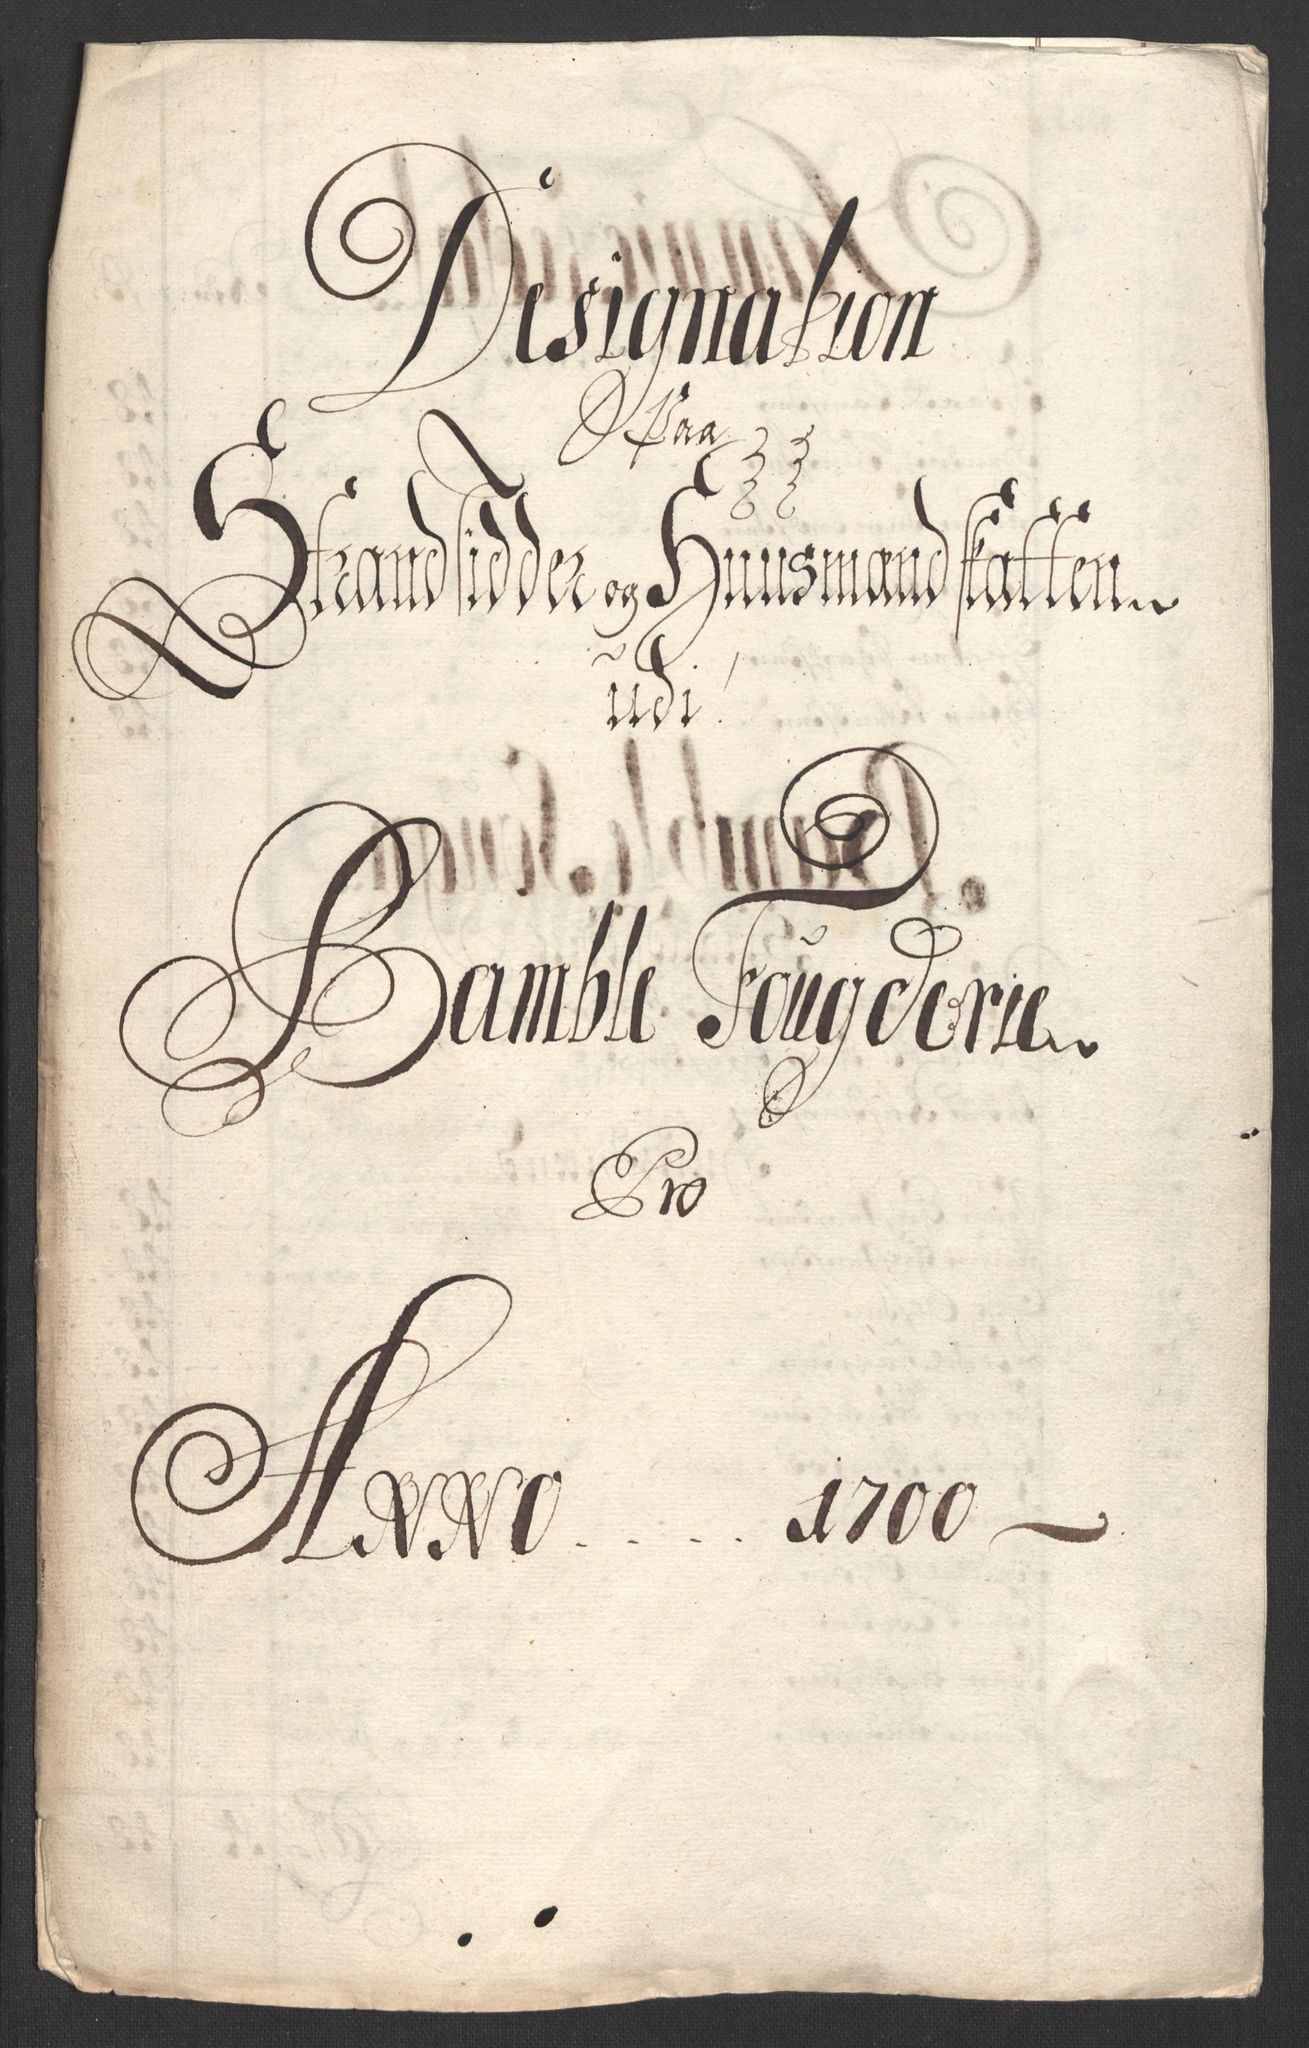 Designation
Paa
Strandsidder og Huusmandskatten
udi
Bamble Fougderie
Pro
Anno .... 1700